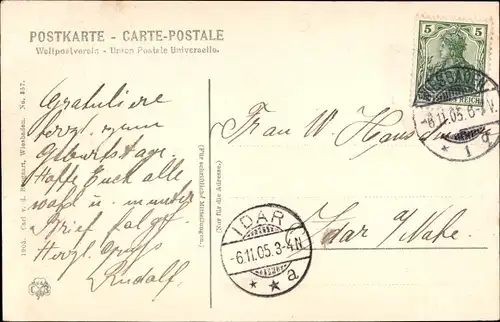 POSTKARTE - CARTE-POSTALE
Weltpostverein - Union Postale Universelle.
5 5
REICH
-6.11.05.
* 1 d
Gratuliere
herzl. zum
Geburtstage.
Hoffe Euch alle
wohl u. munter
Brief folgt.
Herzl. Gruss
Rudolf.
1905. Carl v. d. Wiesbaden. No. 357.
(Für schriftliche Mitteilungen)
(Nur für die Adresse.)
Frau W.
Idar a/Nahe.
IDAR
-6.11.05.3-4N
* * a